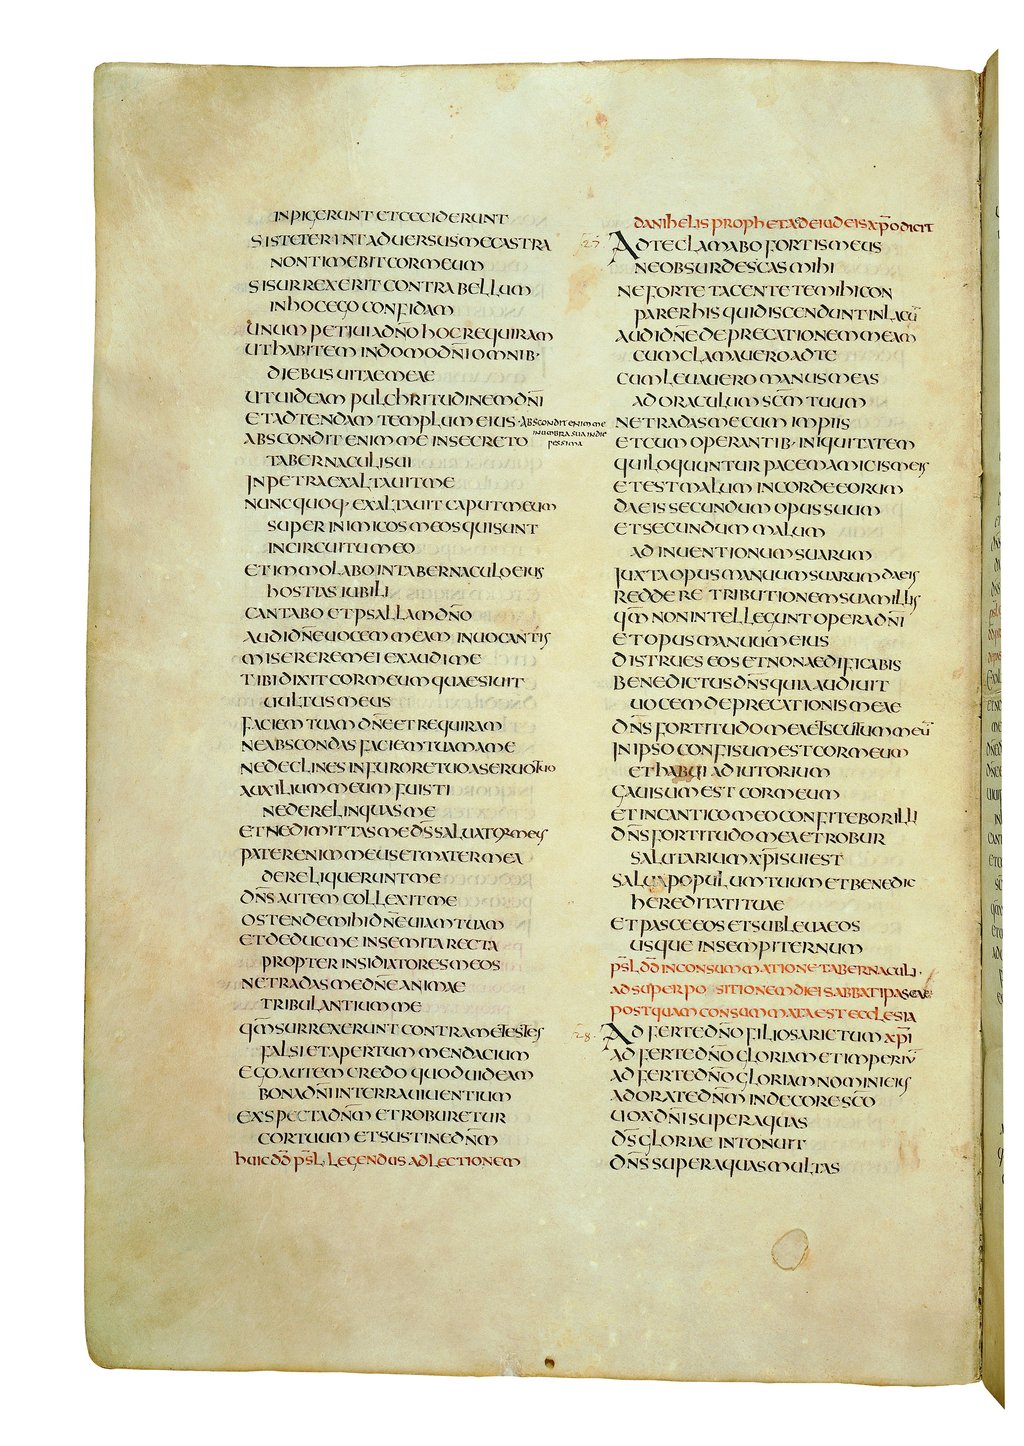 INPIGERUNT ETCECIDERUNT
SISTETERINTADUERSUSMECASTRA
NONTIMEBITCORMEUM
SISURREXERIT CONTRABELLUM
INHOCEGOCONFIDAM
UNUM PETIUIADÑOHOCREQUIRAM
UTHABITEM INDOMODÑIOMNIB·
DIEBUS UITAEMEAE
UTUIDEAM PULCHRITUDINEMDÑI
ETADTENDAM TEMPLUM EIUS·ABSCONDITENIMME
INUMBRASUAINDIE
PESSIMA
ABSCONDIT ENIM ME INSECRETO
TABERNACULISUI
INPETRAEXALTAUITME
NUNCQUOQ· EXALTAUIT CAPUTMEUM
SUPER INIMICOSMEOSQUISUNT
INCIRCUITUMEO
ETIMMOLABOINTABERNACULOEIUS
HOSTIASIUBILI
CANTABO ETPSALLAMDÑO
AUDIDÑEUOCEMMEAM INUOCANTIS
MISEREREMEI EXAUDIME
TIBIDIXIT CORMEUMQUAESIUIT
UULTUSMEUS
FACIEM TUAM DÑEETREQUIRAM
NEABSCONDAS FACIEMTUAMAME
NEDECLINES INFURORETUOASERUOTUO
AUXILIUMMEUM FUISTI
NEDERELINQUASME
ETNEDIMITTASMED̄S̄SALUATORMEUS
PATERENIMMEUSETMATERMEA
DERELIQUERUNTME
DÑSAUTEM COLLEXITME
OSTENDEMIHIDÑEUIAMTUAM
ETDEDUCME INSEMITARECTA
PROPTER INSIDIATORESMEOS
NETRADASMEDÑEANIMAE
TRIBULANTIUMME
QM̄SURREXERUNT CONTRAMETESTES
FALSIETAPERTUMMENDACIUM
EGOAUTEMCREDO QUODUIDEAM
BONADÑIINTERRAUIUENTIUM
EXSPECTADÑM ETROBURETUR
CORTUUM ETSUSTINEDÑM
HUICDD̄ PSL̄ LEGENDUSADLECTIONEM
DANIHELIS PROPHETAEDEIUDEISXP̄ODICIT
27 ADTECLAMABO FORTISMEUS
NEOBSURDESCAS MIHI
NEFORTETACENTETEMIHICON
PARERHISQUIDISCENDUNTINLACŪ
AUDIDÑEDEPRECATIONEMMEAM
CUMCLAMAUEROADTE
CUMLEUAUERO MANUSMEAS
ADORACULUMSCM̄TUUM
NETRADASMECUM IMPIIS
ETCUM OPERANTIB· INIQUITATEM
QUILOQUUNTUR PACEMAMICISMEIS
ETESTMALUM INCORDEEORUM
DAEISSECUNDUM OPUSSUUM
ETSECUNDUM MALUM
ADINUENTIONUMSUARUM
IUXTAOPUSMANUUMSUARUMDAEIS
REDDERE TRIBUTIONEMSUAMILLIS
QM̄ NONINTELLEGUNTOPERADÑI
ETOPUSMANUUMEIUS
DISTRUES EOSETNONAEDIFICABIS
BENEDICTUSDÑSQUIAAUDIUIT
UOCEMDEPRECATIONISMEAE
DÑS FORTITUDOMEAETSCUTUMMEŪ
INIPSO CONFISUMESTCORMEUM
ETHABUI ADIUTORIUM
GAUISUMEST CORMEUM
ETINCANTICOMEOCONFITEBORILLI
DÑSFORTITUDOMEAETROBUR
SALUTARIUMXP̄ISUIEST
SALUAPOPULUMTUUMETBENEDIC
HEREDITATITUAE
ETPASCEEOSETSUBLEUAEOS
USQUE INSEMPITERNUM
PSL̄ DD̄INCONSUMMATIONETABERNACULI·
ADSUPERPO SITIONEMDIEISABBATIPASCAE
POSTQUAMCONSUMMATAESTECCLESIA
28· ADFERTEDÑO FILIOSARIETUM XP̄I
ADFERTEDÑO GLORIAMETIMPERIŪ
ADFERTEDÑO GLORIAMNOMINIEIUS
ADORATEDÑM INDECORESCŌ
UOXDÑISUPERAQUAS
D̄S̄GLORIAE INTONUIT
DÑSSUPERAQUASMULTAS